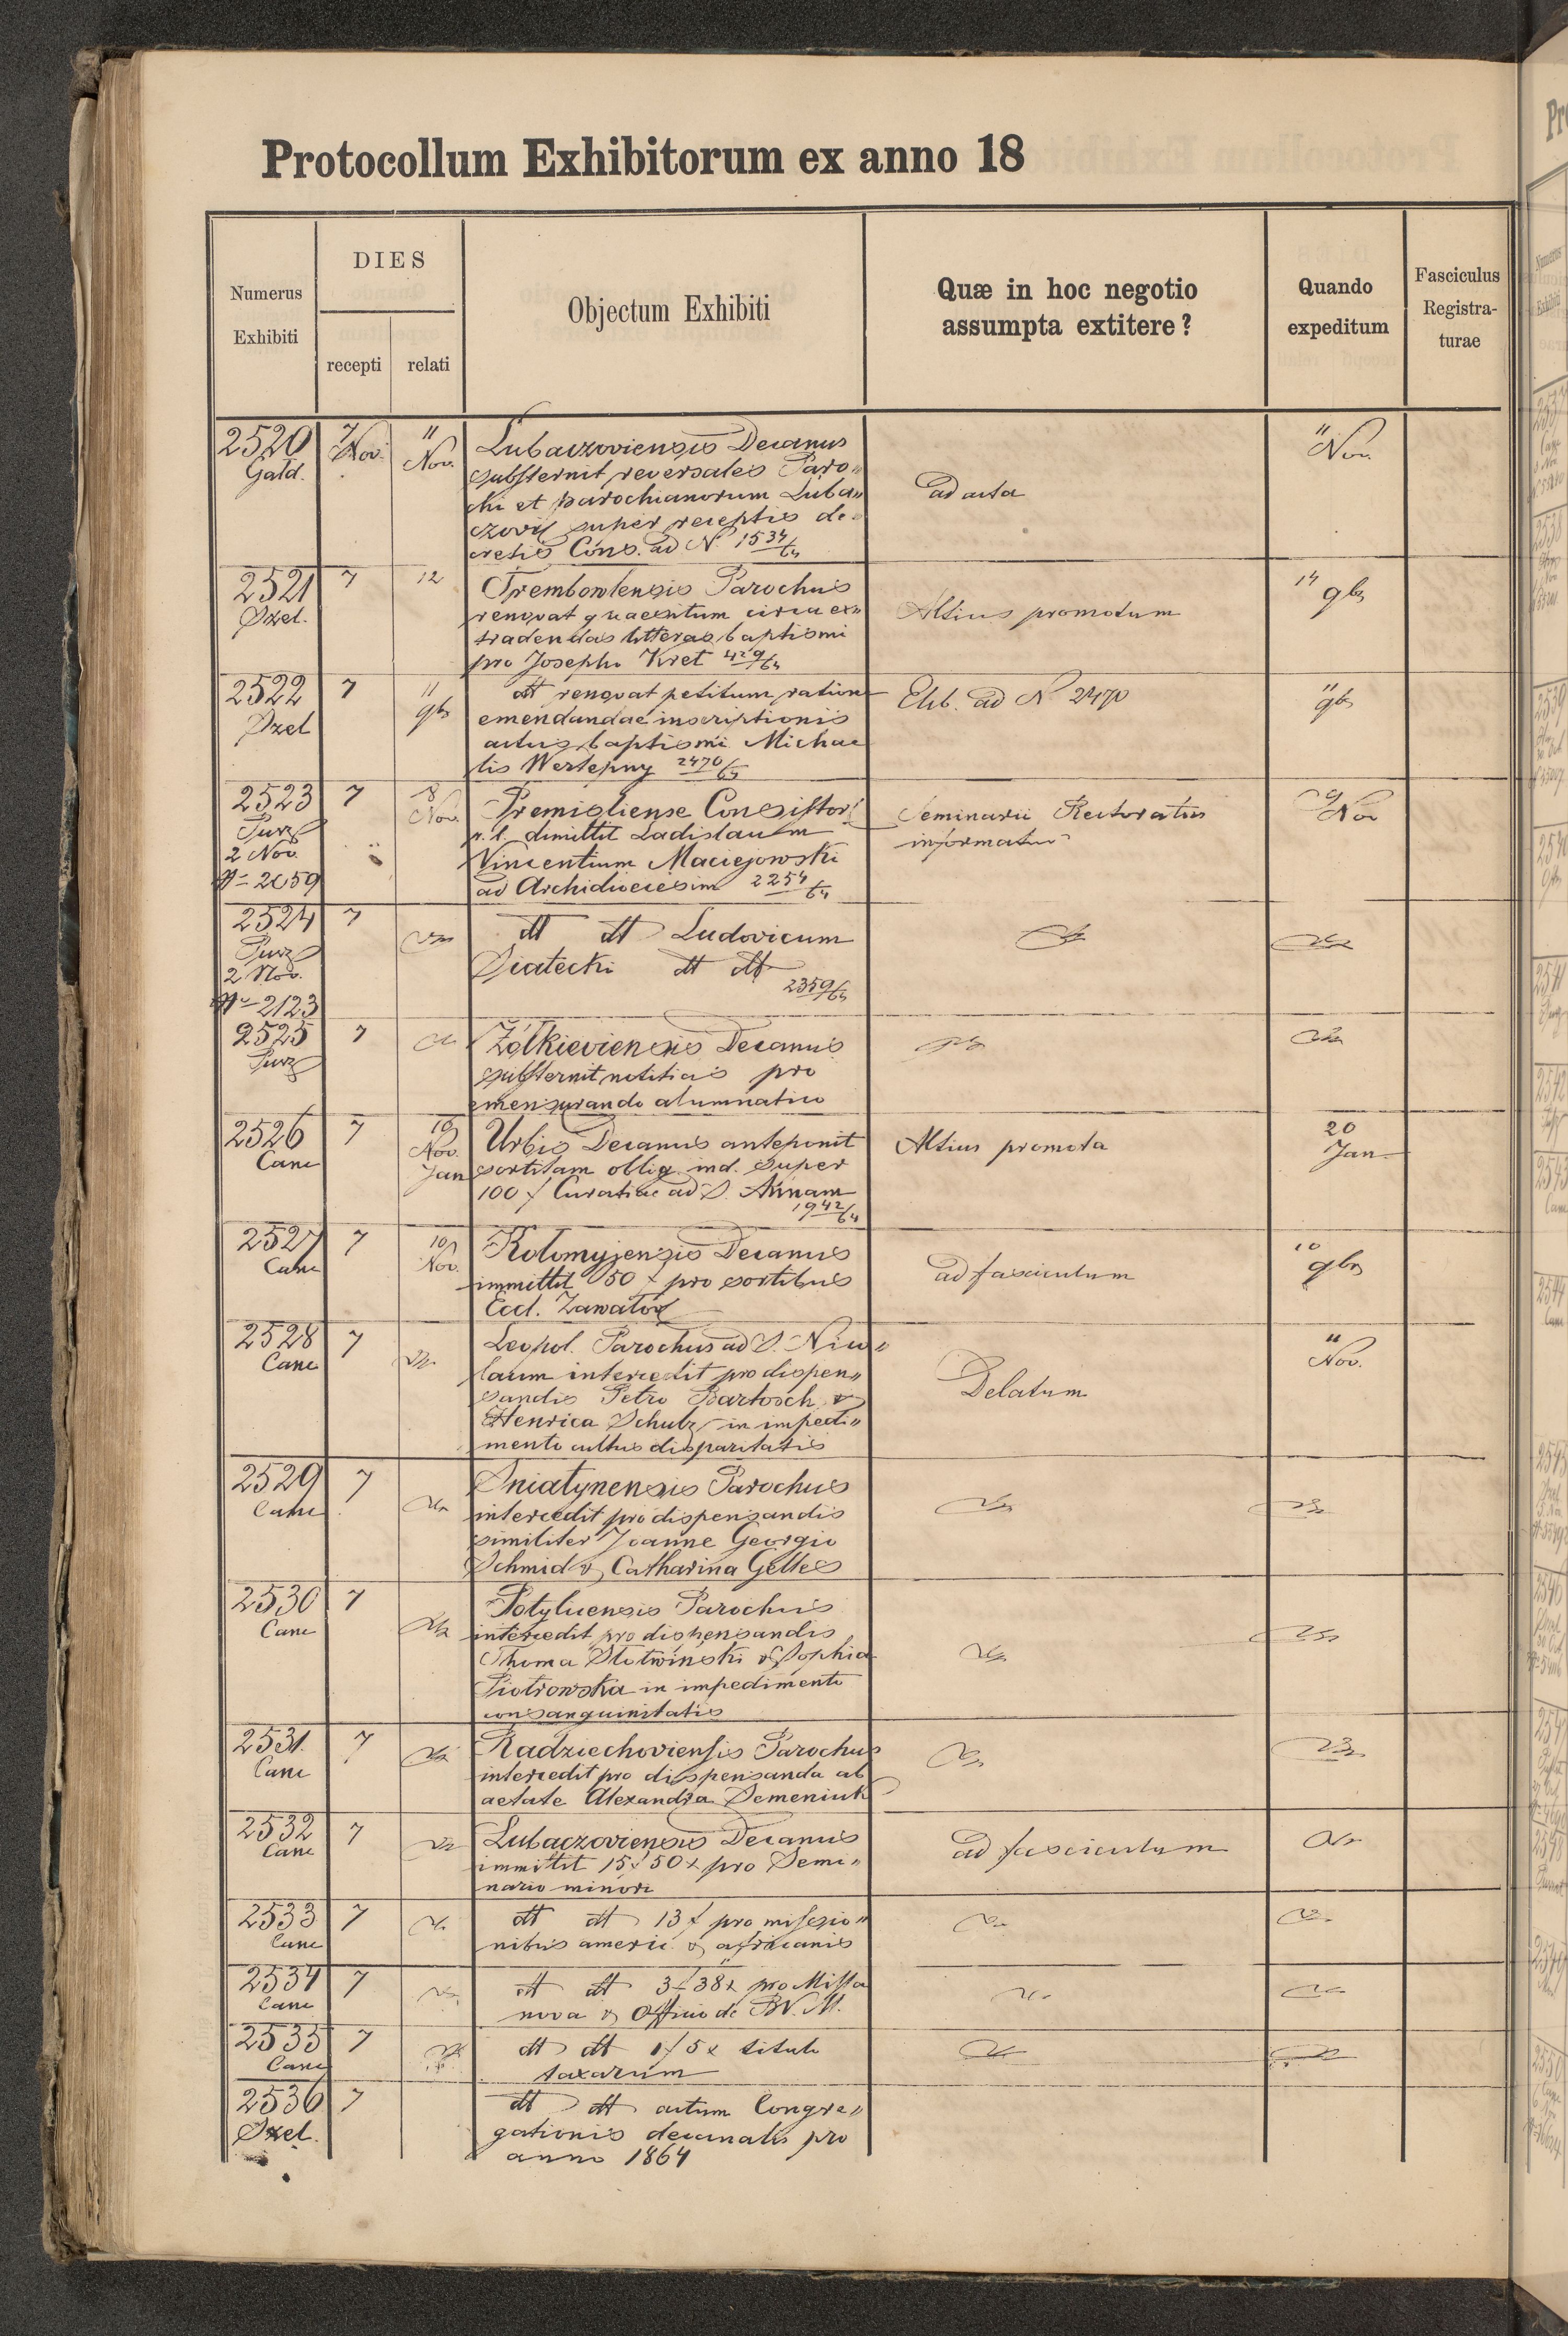 Protocollum Exhibitorum ex anno 18
Numerus
Exhibiti
DIES
recepti
relati
Objectum Exhibiti
Quæ in hoc negotio
assumpta extitere?
Quando
expeditum
Fasciculus
Registra-
turae
2520
7
Nov.
11
Nov.
Lubaczoviensis Decanus
substernit reversales Paro„
chi et parochianorum Luba„
super receptis de„
cretis Cons. ad N. 1534/64
ad acta
11
Nov.
2521
7
12
Trembowlensis Parochus
renovat quaesitum circa ex„
tradendas litteras baptismi
pro Josepho Kret 429/64
Altius promotum
14
9br
2522
7
11
9br
dtt renovat petitum ratione
emendandae inscriptionis
actus baptismi Michae
lis Wertepny 2470/63
Exh. ad N 2470
11
9br
2523
Purz
2 Nov.
N= 2059
7
8
Nov.
Premisliense Consistor.
r. l. dimittit Ladislaum
Vincentium Maciejowski
ad Archidioecesim 2254/64
Seminarii Rectoratus
informatur
9
Nov
2524
Purz
2 Nov.
N= 2123
7
dtt dtt Ludovicum
Siatecki dtt dtt
2359/64
2525
Purz
7
Żółkieviensis Decanus
substernit notitias pro
emensurando alumnatico
2526
Canc
7
10
Nov.
Jan
Urbis Decanus anteponit
sortitam oblig. ind. super
100 f Curatiae ad S. Annam
1942/64
Altius promota
20
Jan
2527
Canc
7
10
Nov.
Kolomyjensis Decanus
immittit 50 x pro sortibus
Eccl.
ad fasciculum
10
9br
2528
Canc
7
Leopol. Parochus ad S. Nico„
laum intercedit pro dispen„
sandis Petro Bartosch &
Henrica Schulz in impedi„
mento cultus disparitatis
Delatum
11
Nov.
2529
Canc
7
Sniatynensis Parochus
intercedit pro dispensandis
similiter Joanne Georgio
Schmid & Catharina Gelles
2530
Canc
7
Potylicensis Parochus
intercedit pro dispensandis
Thoma Slotwinski & Sophia
Piotrowska in impedimento
consanguinitatis
2531.
Canc
7
Radziechoviensis Parochus
intercedit pro dispensanda ab
aetate Alexandra Semeniuk
2532
Canc
7
Lubaczoviensis Decanus
immittit 15 f 50 x pro Semi„
nario minori
ad fasciculum
2533
Canc
7
dtt dtt 13 f pro missio„
nibus americ. & africanis
2534
Canc
7
dtt dtt 3 f 38 x pro Missa
nova & Officio de B.V.M.
2535
Canc
7
dtt dtt 1 f 5 x titulo
taxarum
2536
7
dtt dtt actum Congre„
gationis decanalis pro
anno 1864